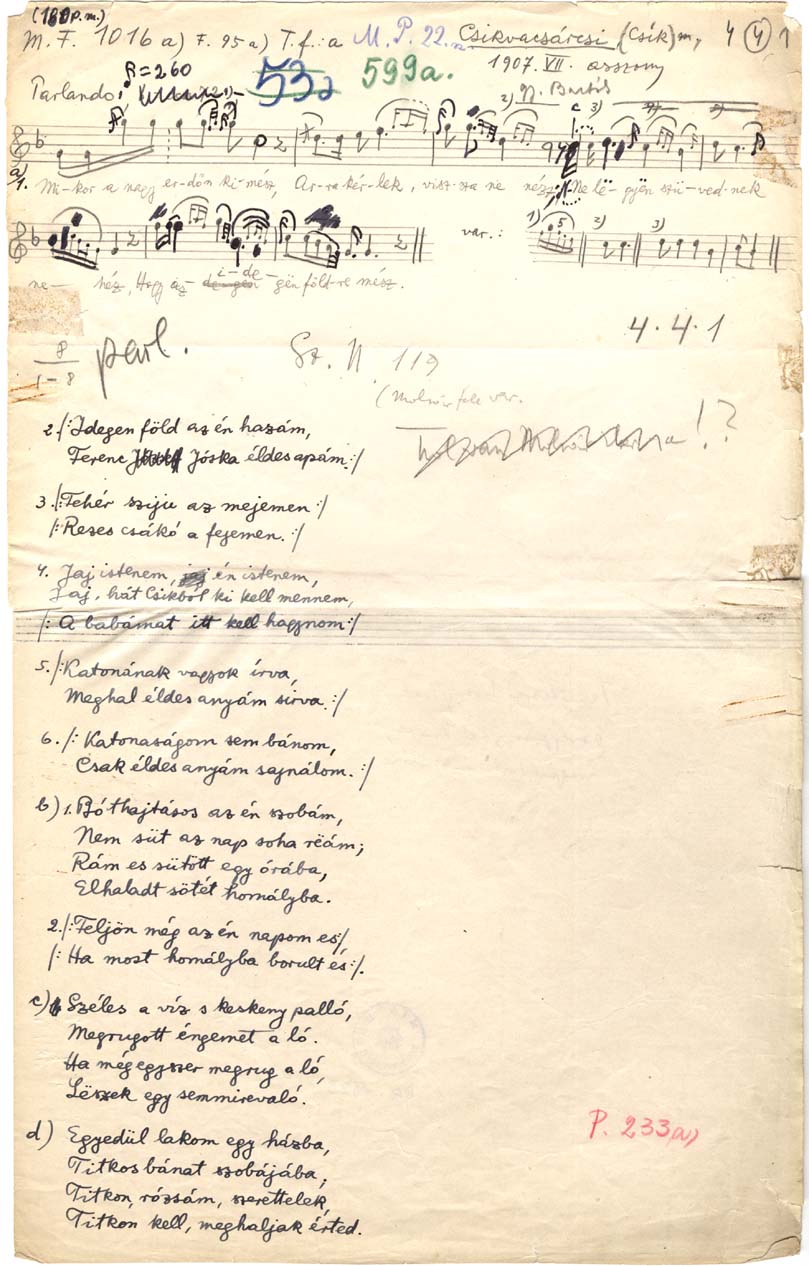 (180 p.m.)
M. F. 1016 a) F. 95 a) T.f.: a M. P. 22. Csikvacsárcsi (Csík) m, 4 4 1
1907. VII. asszony
Parlando, =260 53a 599a. 2) Bartók
2) 3)
a) 1. Mi-kor a nagy er-dőn ki-mész, Ar-ra kér-lek, visz-sza ne nézz, Ne lë-gyën szü-ved-nek
var.: 1) 5 2) 3)
ne- héz, Hogy az i-de-gën föld-re mész.
4.4.1
8
1-8
parl. Sz. N 119
(Molnár féle var.
!?
2. /: Idegen föld az én hazám,
Ferenc Jóska éldes apám. :/
3. /: Fehér sziju az mejemen :/
/: Rezes csákó a fejemen. :/
4. Jaj istenem, én istenem,
Jaj, hát Csikból ki kell mennem,
/: A babámat itt kell hagynom :/
5. /: Katonának vagyok írva,
Meghal éldes anyám sirva. :/
6. /: Katonaságom sem bánom,
Csak éldes anyám sajnálom. :/
b) 1. Bóthajtásos az én szobám,
Nem süt az nap soha rëám;
Rám es sütött egy órába,
Elhaladt sötét homályba.
2. /: Feljön még az én napom es :/
/: Ha most homályba borult és :/.
c) Széles a víz s keskeny palló,
Megrugott éngemet a ló.
Ha mégegyszer megrug a ló,
Lëszek egy semmirevaló.
d) Egyedül lakom egy házba,
Titkos bánat szobájába;
Titkon, rózsám, szerettelek,
Titkon kell, meghaljak érted.
P. 233(a)